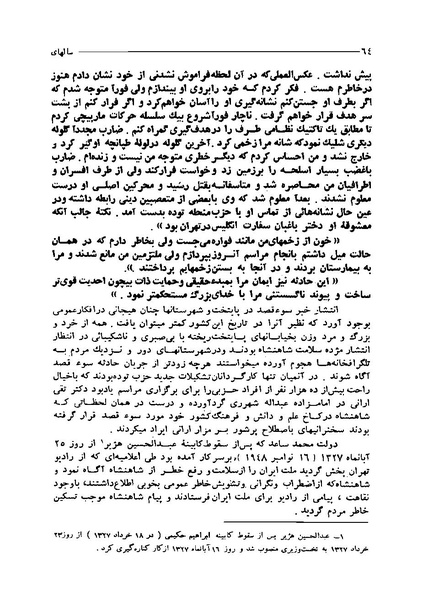 ۶۴ سالهای
پیش نداشت . عکس‌العملی‌که در آن لحظه‌فراموش نشدنی از خود نشان دادم هنوز
درخاطرم هست . فکر کردم که خود رابروی او بیندازم ولی فوراً متوجه شدم که
اگر بطرف او جستن‌کنم نشانه‌گیری او راآسان خواهم‌کرد و اگر فرار کنم از پشت
سر هدف قرار خواهم گرفت . ناچار فوراًشروع بیك سلسله حرکات مارپیچی کردم
تا مطابق یك تاکتیك نظامی طرف را درهدف‌گیری گمراه کنم . ضارب مجدداً گلوله
دیگری شلیك نمودکه شانه مرا زخمی کرد. آخرین گلوله درلوله طپانچه اوگیر کرد و
خارج نشد و من احساس کردم که دیگر خطری متوجه من نیست و زنده‌ام . ضارب
باغضب بسیار اسلحه را برزمین زد وخواست فرارکند ولی از طرف افسران و
اطرافیان من محاصره شد و متأسفانه بقتل رسید و محرکین اصلی او درست
معلوم نشدند . بعداً معلوم شد که وی بابعضی از متعصبین دینی رابطه داشته ودر
عین حال نشانه‌هائی از تماس او با حزب‌منحله توده بدست آمد . نکتۀ جالب آنکه
معشوقۀ او دختر باغبان سفارت انگلیس درتهران بود» .
«خون از زخمهای‌من مانند فواره‌می‌جست ولی بخاطر دارم که در همان
حالت میل داشتم بانجام مراسم آنروزبپردازم ولی ملتزمین من مانع شدند و مرا
به بیمارستان بردند و در آنجا به بستن‌زخمهایم پرداختند ».
«این حادثه نیز ایمان مرا بمبدءحقیقی‌وحمایت ذات بیچون احدیت قوی‌تر
ساخت و پیوند ناگسستنی مرا با خدای‌بزرگ مستحکمتر نمود . »
انتشار خبر سوءقصد در پایتخت‌و شهرستانها چنان هیجانی درافکارعمومی
بوجود آورد که نظیر آنرا در تاریخ این‌کشور کمتر میتوان یافت . همه از خرد و
بزرگ و مرد وزن بخیابانهای پایتخت‌ریخته با بی‌صبری و ناشکیبائی در انتظار
انتشار مژده سلامت شاهنشاه بودند ودرشهرستانهای دور و نزدیك مردم به
تلگرافخانه‌ها هجوم آورده میخواستند هرچه زودتر از جریان حادثه سوء قصد
آگاه شوند . در آنمیان تنها کارگردانان‌تشکیلات جدید حزب توده‌بودند که‌باخیال
راحت بیش‌از ده هزار نفر از افراد حزبی‌را برای برگزاری مراسم یادبود دکتر تقی
ارانی در امامزاده عبداله شهرری گردآورده و درست در همان لحظاتی که
شاهنشاه درکاخ علم و دانش و فرهنگ‌کشور خود مورد سوء قصد قرار گرفته
بودند سخنرانیهای باصطلاح پرشور بر مزار ارانی ایراد میکردند .
دولت محمد ساعد که پس‌از سقوط‌کابینۀ عبدالحسین هژیر۱ از روز ۲۵
آبانماه ۱۳۲۷ (۱۶ نوامبر ۱۹۴۸ )،برسرکار آمده بود طی اعلامیه‌ای که از رادیو
تهران پخش گردید ملت ایران راازسلامت‌و رفع خطر از شاهنشاه آگاه نمود و
شاهنشاه‌که ازاضطراب ونگرانی وتشویش‌خاطر عمومی بخوبی اطلاع‌داشتند، باوجود
نقاهت ، پیامی از رادیو برای ملت ایران‌فرستادند و پیام شاهنشاه موجب تسکین
خاطر مردم گردید .
۱ــ عبدالحسین هژیر پس از سقوط کابینه ابراهیم حکیمی ( در ۱۸ خرداد ۱۳۲۷ ) از روز۲۳
خرداد ۱۳۲۷ به نخست‌وزیری منصوب شد و روز ۱۶آبانماه ۱۳۲۷ ازکار کناره‌گیری کرد .